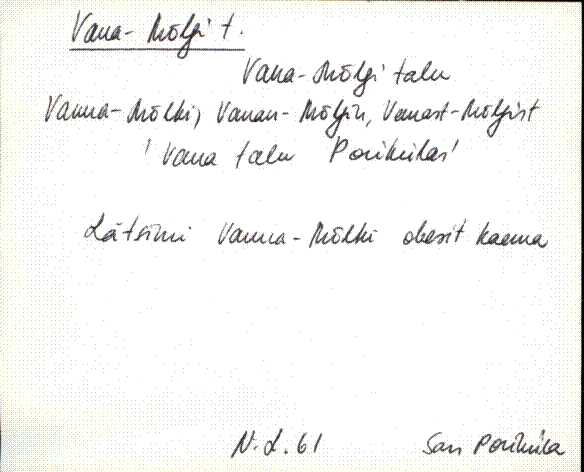 Vana-Mõlgi t.
Vana-Mõlgi talu
Vanna-Mõlki, Vanan-Mõlgih, Vanast-Mõlgist
'Vana talu Porikülas'
Lätsimi Vanna-Mõlki obesit kaema
N.L. 61 San Poriküla